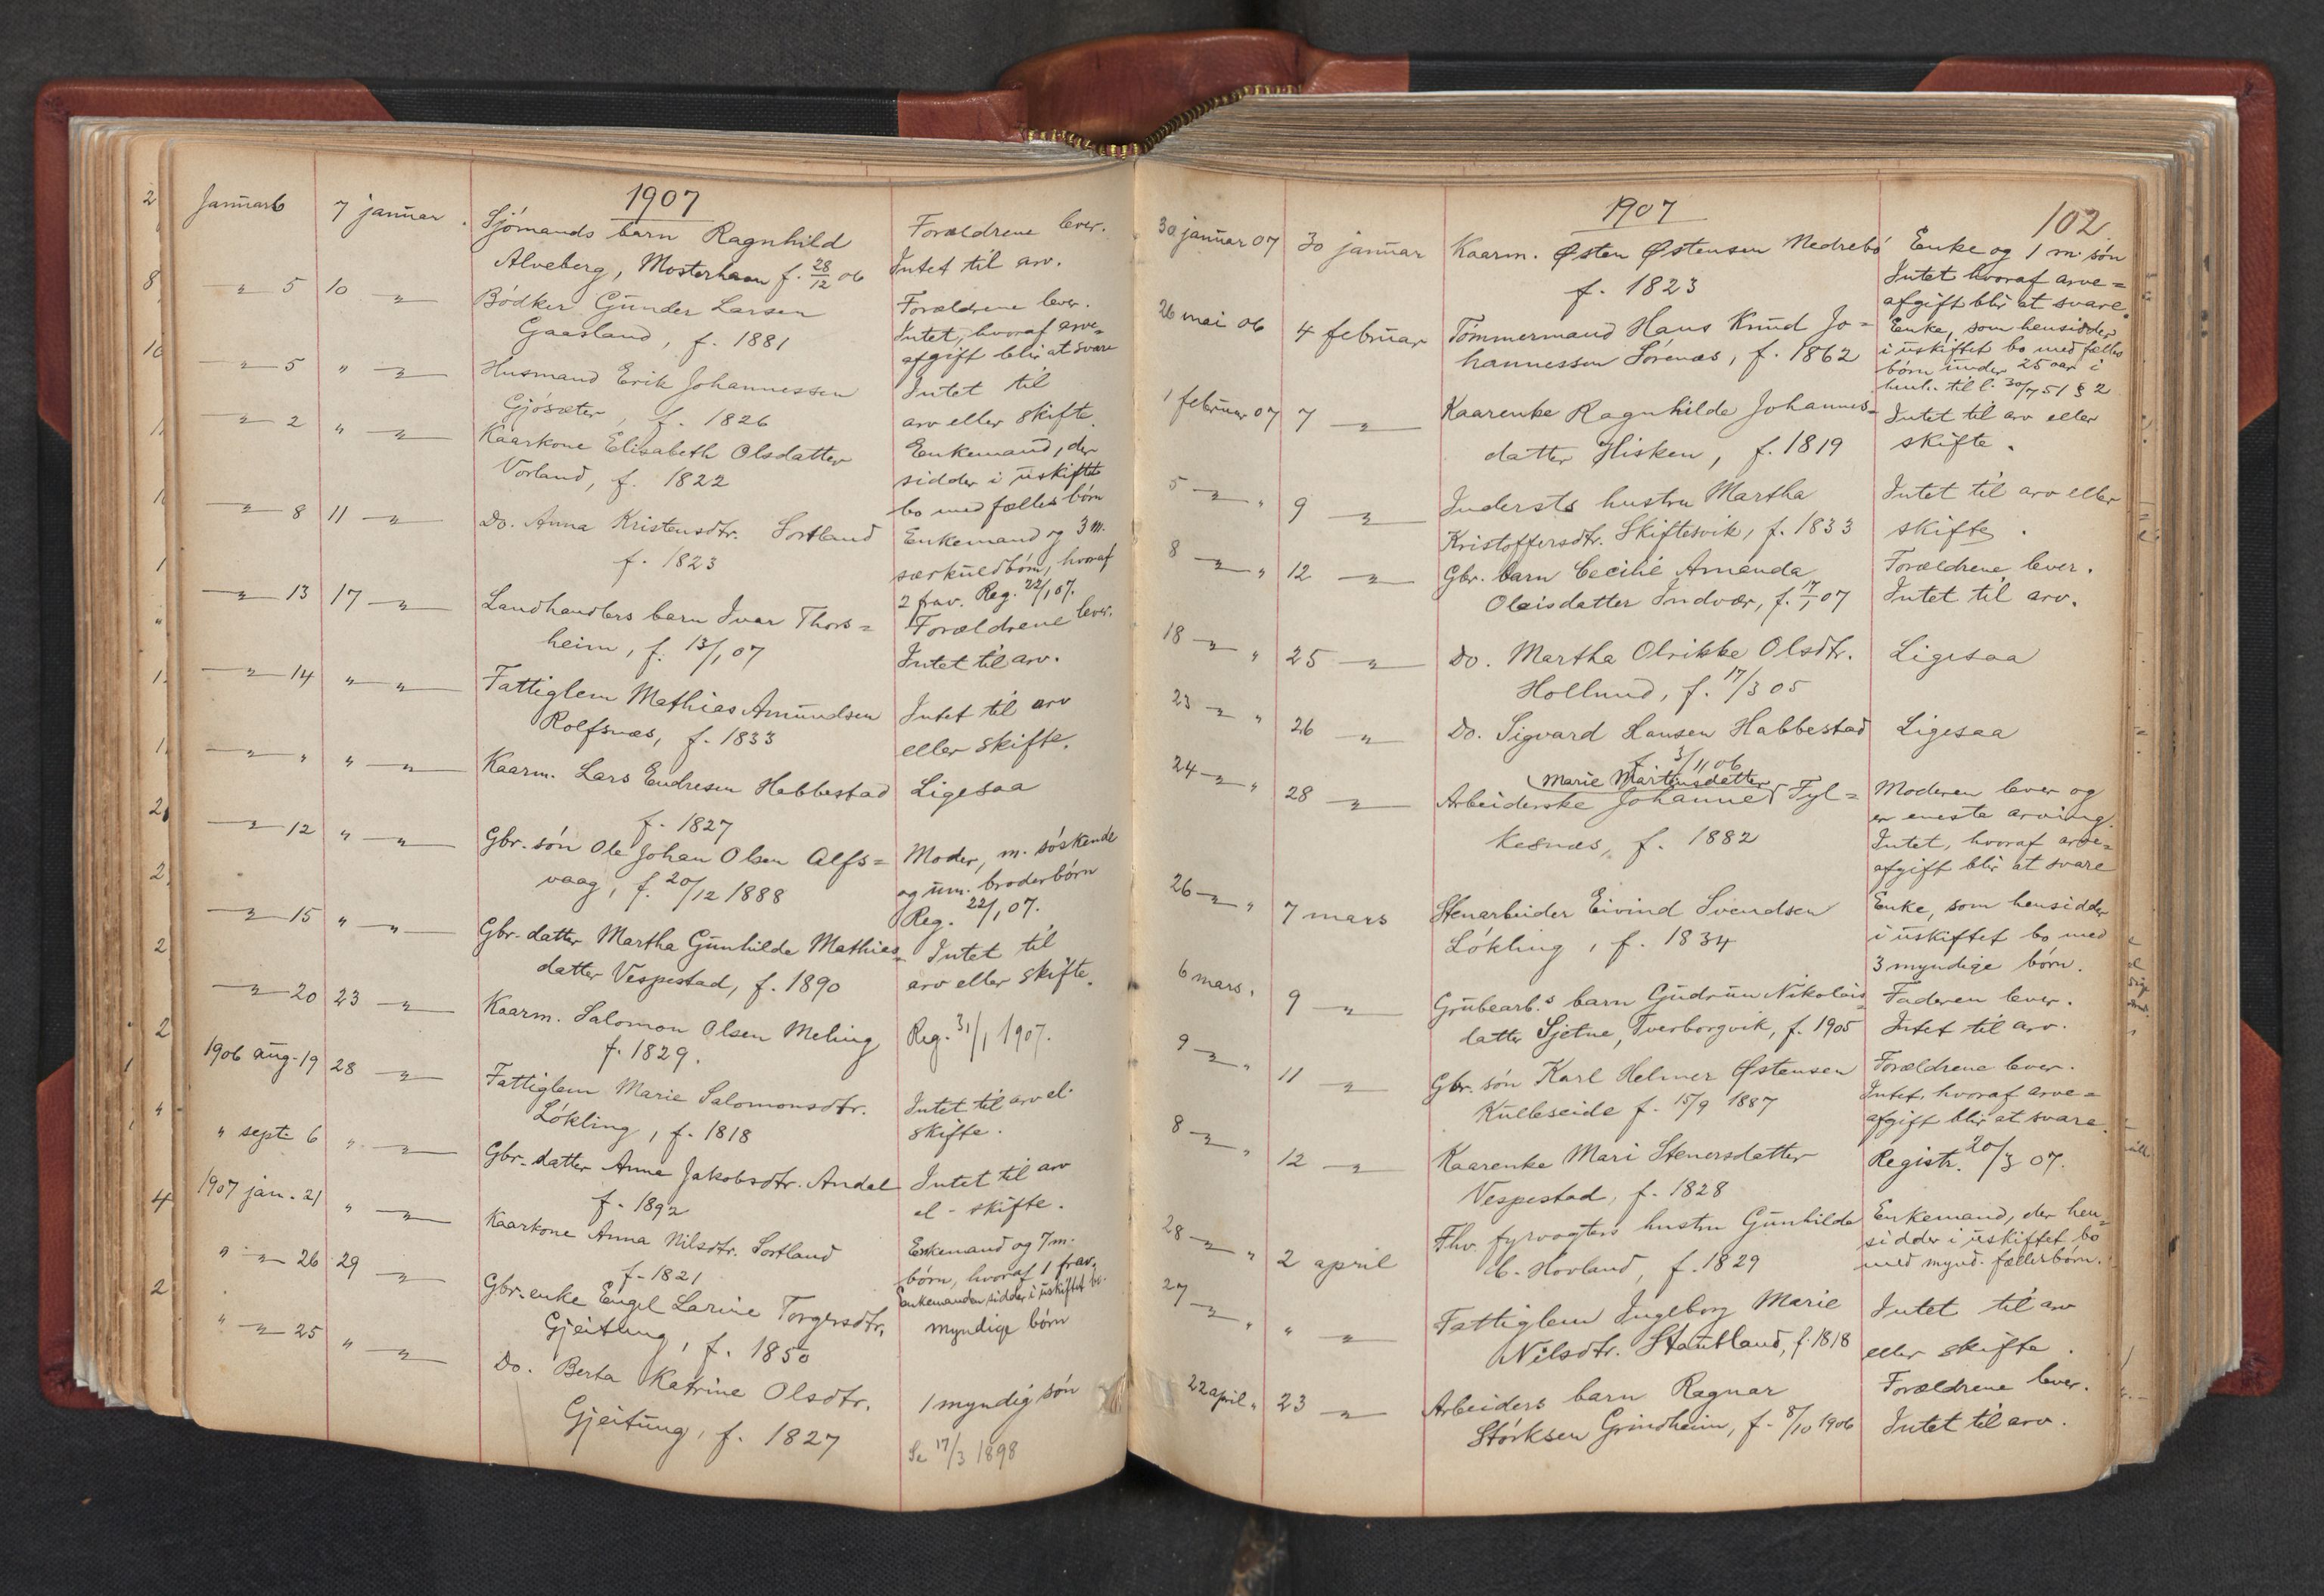 1907
Januar 6 7 januar. Sjømands barn Ragnhild Forældrene lever.
Alveberg, Mosterhavn f. 28/12 06 Intet til arv.
" 5 10 " Bødker Gunder Larsen Forældrene lever.
Gaasland, f. 1881 Intet, hvoraf arve=
afgift blir at svare
" 5 " " Husmand Erik Johannessen Intet til
Gjøsæter, f. 1826 arv eller skifte.
" 2 " " Kaarkone Elisabeth Olsdatter Enkemand, der
Vorland, f. 1822 sidder i uskiftet
bo med fælles børn
" 8 11 " Do. Anna Kristensdtr. Sortland Enkemand og 3 m.
f. 1823 særkuldbørn, hvoraf
2 frav. Reg. 22/1 07.
" 13 17 " Landhandlers barn Ivar Thors= Forældrene lever.
heim, f. 13/1 07 Intet til arv.
" 14 " " Fattiglem Mathias Amundsen Intet til arv
Rolfsnæs, f. 1833 eller skifte.
" " " " Kaarm. Lars Endresen Habbestad Ligesaa
f. 1827
" 12 " " Gbr. søn Ole Johan Olsen Alfs= Moder, m. søskende
vaag, f. 20/12 1888 og um. broderbørn
Reg. 22/1 07.
" 15 " " Gbr. datter Martha Gunhilde Mathias= Intet til
datter Vespestad, f. 1890 arv eller skifte.
" 20 23 " Kaarm. Salomon Olsen Meling Reg. 31/1 1907.
f. 1829.
1906 aug. 19 28 " Fattiglem Marie Salomonsdtr. Intet til arv el.
Løkling, f. 1818 skifte.
" sept. 6 " " Gbr. datter Anna Jakobsdtr. Andal Intet til arv
f. 1892 el. skifte.
1907 jan. 21 " " Kaarkone Anna Nilsdtr. Sortland Enkemand og 7 m.
f. 1821 børn, hvoraf 1 frav.
Enkemanden sidder i uskiftet bo.
" " 26 29 " Gbr. enke Engel Larine Torgersdtr. myndige børn
Gjeitung, f. 1850
" " 25 " " Do. Berta Katrine Olsdtr. 1 myndig søn
Gjeitung, f. 1827 Se 17/3 1898
1907 102.
30 januar 07 30 januar Kaarm. Østen Østensen Nedrebø Enke og 1 m. søn
f. 1823 Intet hvoraf arve=
afgift blir at svare.
26 mai 06 4 februar Tømmermand Hans Knud Jo= Enke, som hensidder
hannessen Sørenæs, f. 1862 i uskiftet bo med fælles
børn under 25 aar i
henh. til l. 30/7 51 § 2
1 februar 07 7 " Kaarenke Ragnhilde Johannes= Intet til arv eller
datter Hisken, f. 1819 skifte.
5 " " 9 " Indersts hustru Martha Intet til arv eller
Kristoffersdtr. Skiftesvik, f. 1833 skifte.
8 " " 12 " Gbr. barn Cecilie Amanda Forældrene lever.
Olaisdatter Indvær, f. 17/1 07 Intet til arv.
18 " " 25 " Do. Martha Olrikke Olsdtr. Ligesaa
Hollund, f. 17/3 05
23 " " 26 " Do. Sigvard Hansen Habbestad Ligesaa
f. 3/11 06
Marie Martinsdatter
24 " " 28 " Arbeiderske Johanne Fyl= Moderen lever og
kesnæs, f. 1882 er eneste arving.
Intet, hvoraf arve=
afgift blir at svare
26 " " 7 mars Stenarbeider Eivind Svendsen Enke, som hensidder
Løkling, f. 1834 i uskiftet bo med
3 myndige børn.
6 mars. 9 " Grubearb.s barn Gudrun Nikolais= Faderen lever.
datter Sjetne, Tverborgvik, f. 1905 Intet til arv.
9 " " 11 " Gbr. søn Karl Helmer Østensen Forældrene lever.
Kulleseide f. 15/9 1887 Intet, hvoraf arve=
afgift blir at svare.
8 " " 12 " Kaarenke Mari Stenersdatter Registr. 20/3 07.
Vespestad, f. 1828
28 " " 2 april Fhv. fyrvogters hustru Gunhilde Enkemand, der hen=
Hovland, f. 1829 sidder i uskiftet bo
med mynd. fællesbørn.
27 " " " " Fattiglem Ingeborg Marie Intet til arv
Nilsdtr. Stautland, f. 1818 eller skifte.
22 april " 23 " Arbeiders barn Ragnar Forældrene lever.
Størksen Grindheim, f. 8/10 1906 Intet til arv.